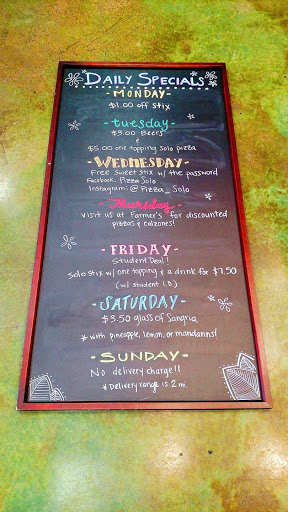 DAILY SPECIALS
-MONDAY-
$1.00 off Stix
-tuesday-
$3.00 Beers
&
$5.00 one topping Solo pizza
-WEDNESDAY-
Free Sweet Stix w/ the password
Facebook: Pizza Solo
Instagram: @Pizza_Solo
-Thursday-
Visit us at Farmer's for discounted
pizzas & calzones!
-FRIDAY-
Student Deal!
Solo Stix w/ one topping & a drink for $7.50
(w/ student I.D)
-SATURDAY-
$3.50 glass of Sangria
*with pineapple, lemon, or mandarins!
-SUNDAY-
No delivery charge!!
*Delivery range is 2 mi.